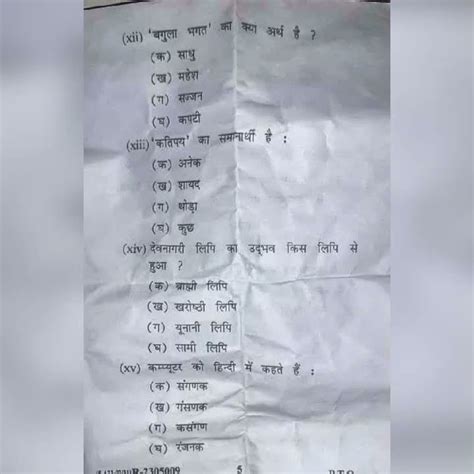 (xii) 'बगुला भगत' का क्या अर्थ है ?
(क) साधु
(ख) महेश
(ग) सज्जन
(घ) कपटी
(xiii) 'कतिपय' का समानार्थी है :
(क) अनेक
(ख) शायद
(ग) थोड़ा
(घ) कुछ
(xiv) देवनागरी लिपि का उद्भव किस लिपि से
हुआ ?
(क) ब्राह्मी लिपि
(ख) खरोष्ठी लिपि
(ग) यूनानी लिपि
(घ) सामी लिपि
(xv) कम्प्यूटर को हिन्दी में कहते हैं :
(क) संगणक
(ख) गंसणक
(ग) कसंगण
(घ) रंजनक
R-2305009 5 P.T.O.